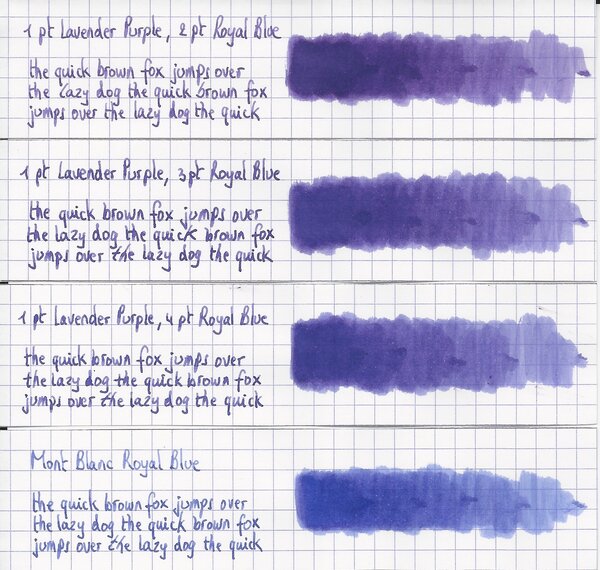 1 pt Lavender Purple, 2 pt Royal Blue
the quick brown fox jumps over
the lazy dog the quick brown fox
jumps over the lazy dog the quick
1 pt Lavender Purple, 3pt Royal Blue
the quick brown fox jumps over
the lazy dog the quick brown fox
jumps over the lazy dog the quick
1 pt Lavender Purple, 4 pt Royal Blue
the quick brown fox jumps over
the lazy dog the quick brown fox
jumps over the lazy dog the quick
Mont Blanc Royal Blue
the quick brown fox jumps over
the lazy dog the quick brown fox
jumps over the lazy dog the quick